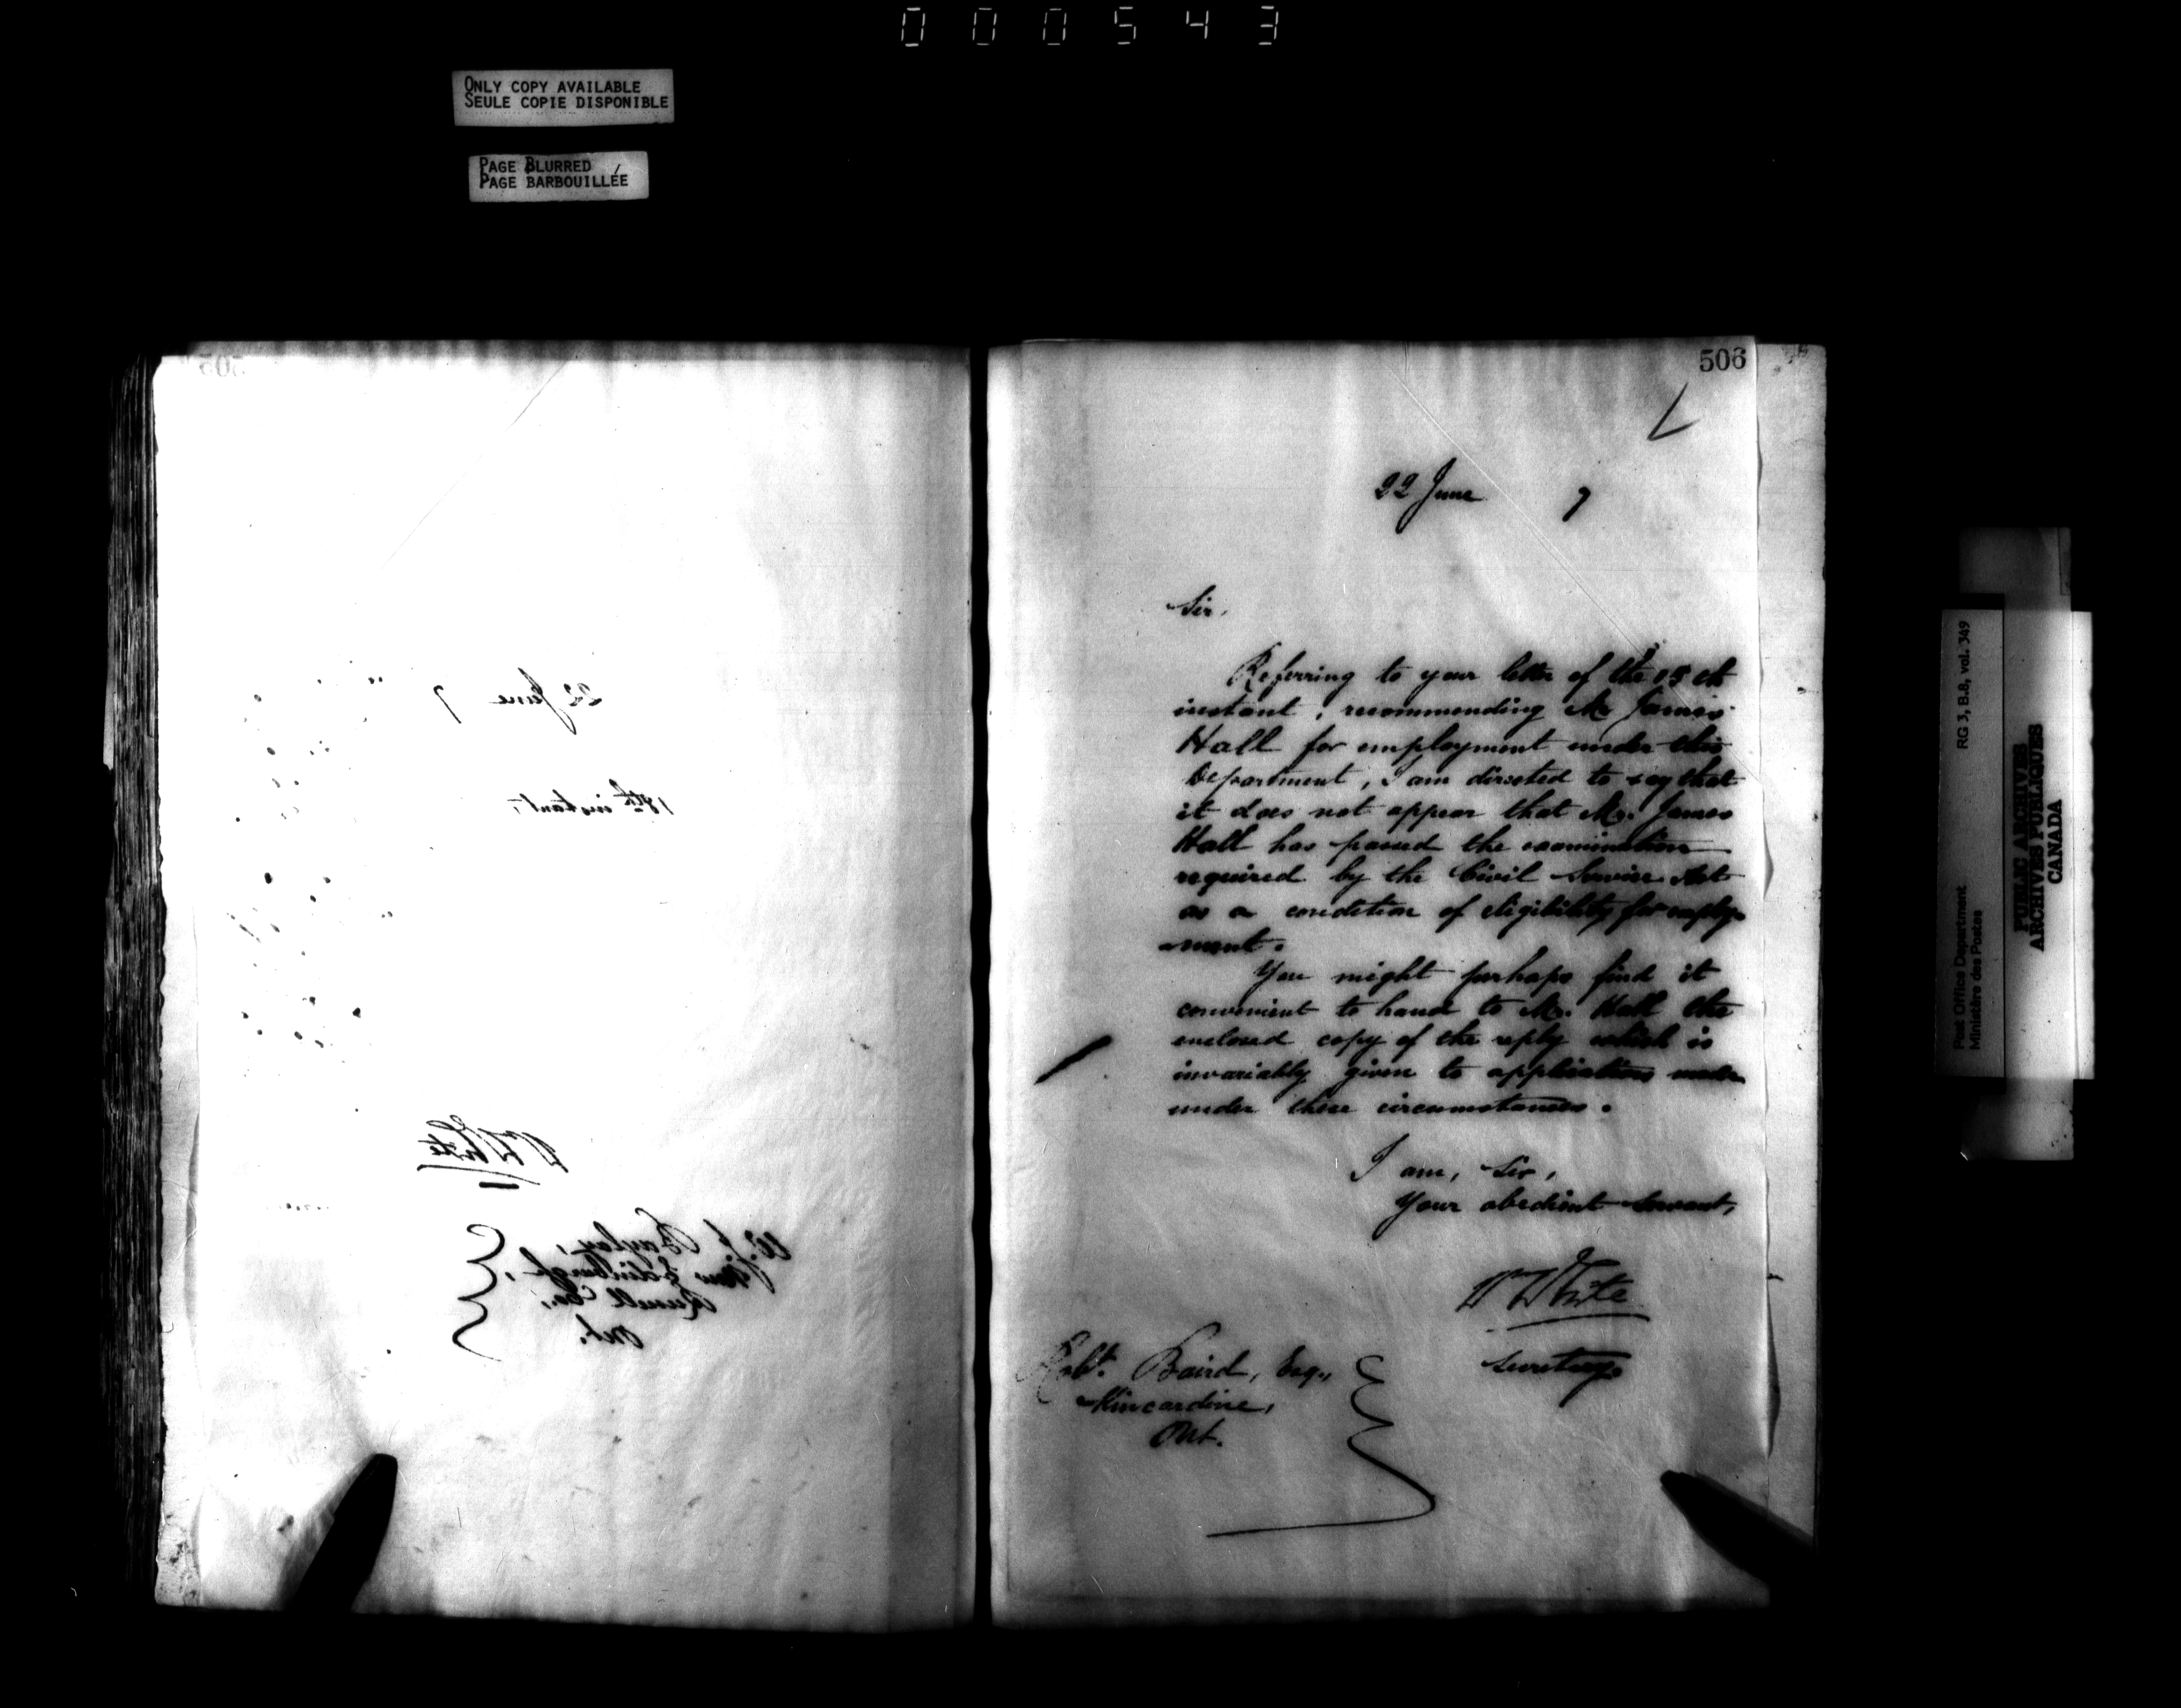 000543
ONLY COPY AVAILABLE
SEULE COPIE DISPONIBLE
PAGE BLURRED
PAGE BARBOUILLÉE
505
22 June 7
18th instant,
W White
W. J. Bayley,
New Edinburgh,
Russell Co.,
Ont.
506
22 June 7
Sir,
Referring to your letter of the 15th
instant, recommending Mr James
Hall for employment under this
Department, I am directed to say that
it does not appear that Mr. James
Hall has passed the examination
required by the Civil Service Act
as a condition of eligibility for employ-
-ment.
You might perhaps find it
convenient to hand to Mr. Hall the
enclosed copy of the reply which is
invariably given to applications made
under these circumstances.
I am, Sir,
Your obedient Servant,
W White
Secretary.
Robt. Baird, Esq.,
Kincardine,
Ont.
Post Office Department RG 3, B.8, vol. 349
Ministère des Postes
PUBLIC ARCHIVES
ARCHIVES PUBLIQUES
CANADA